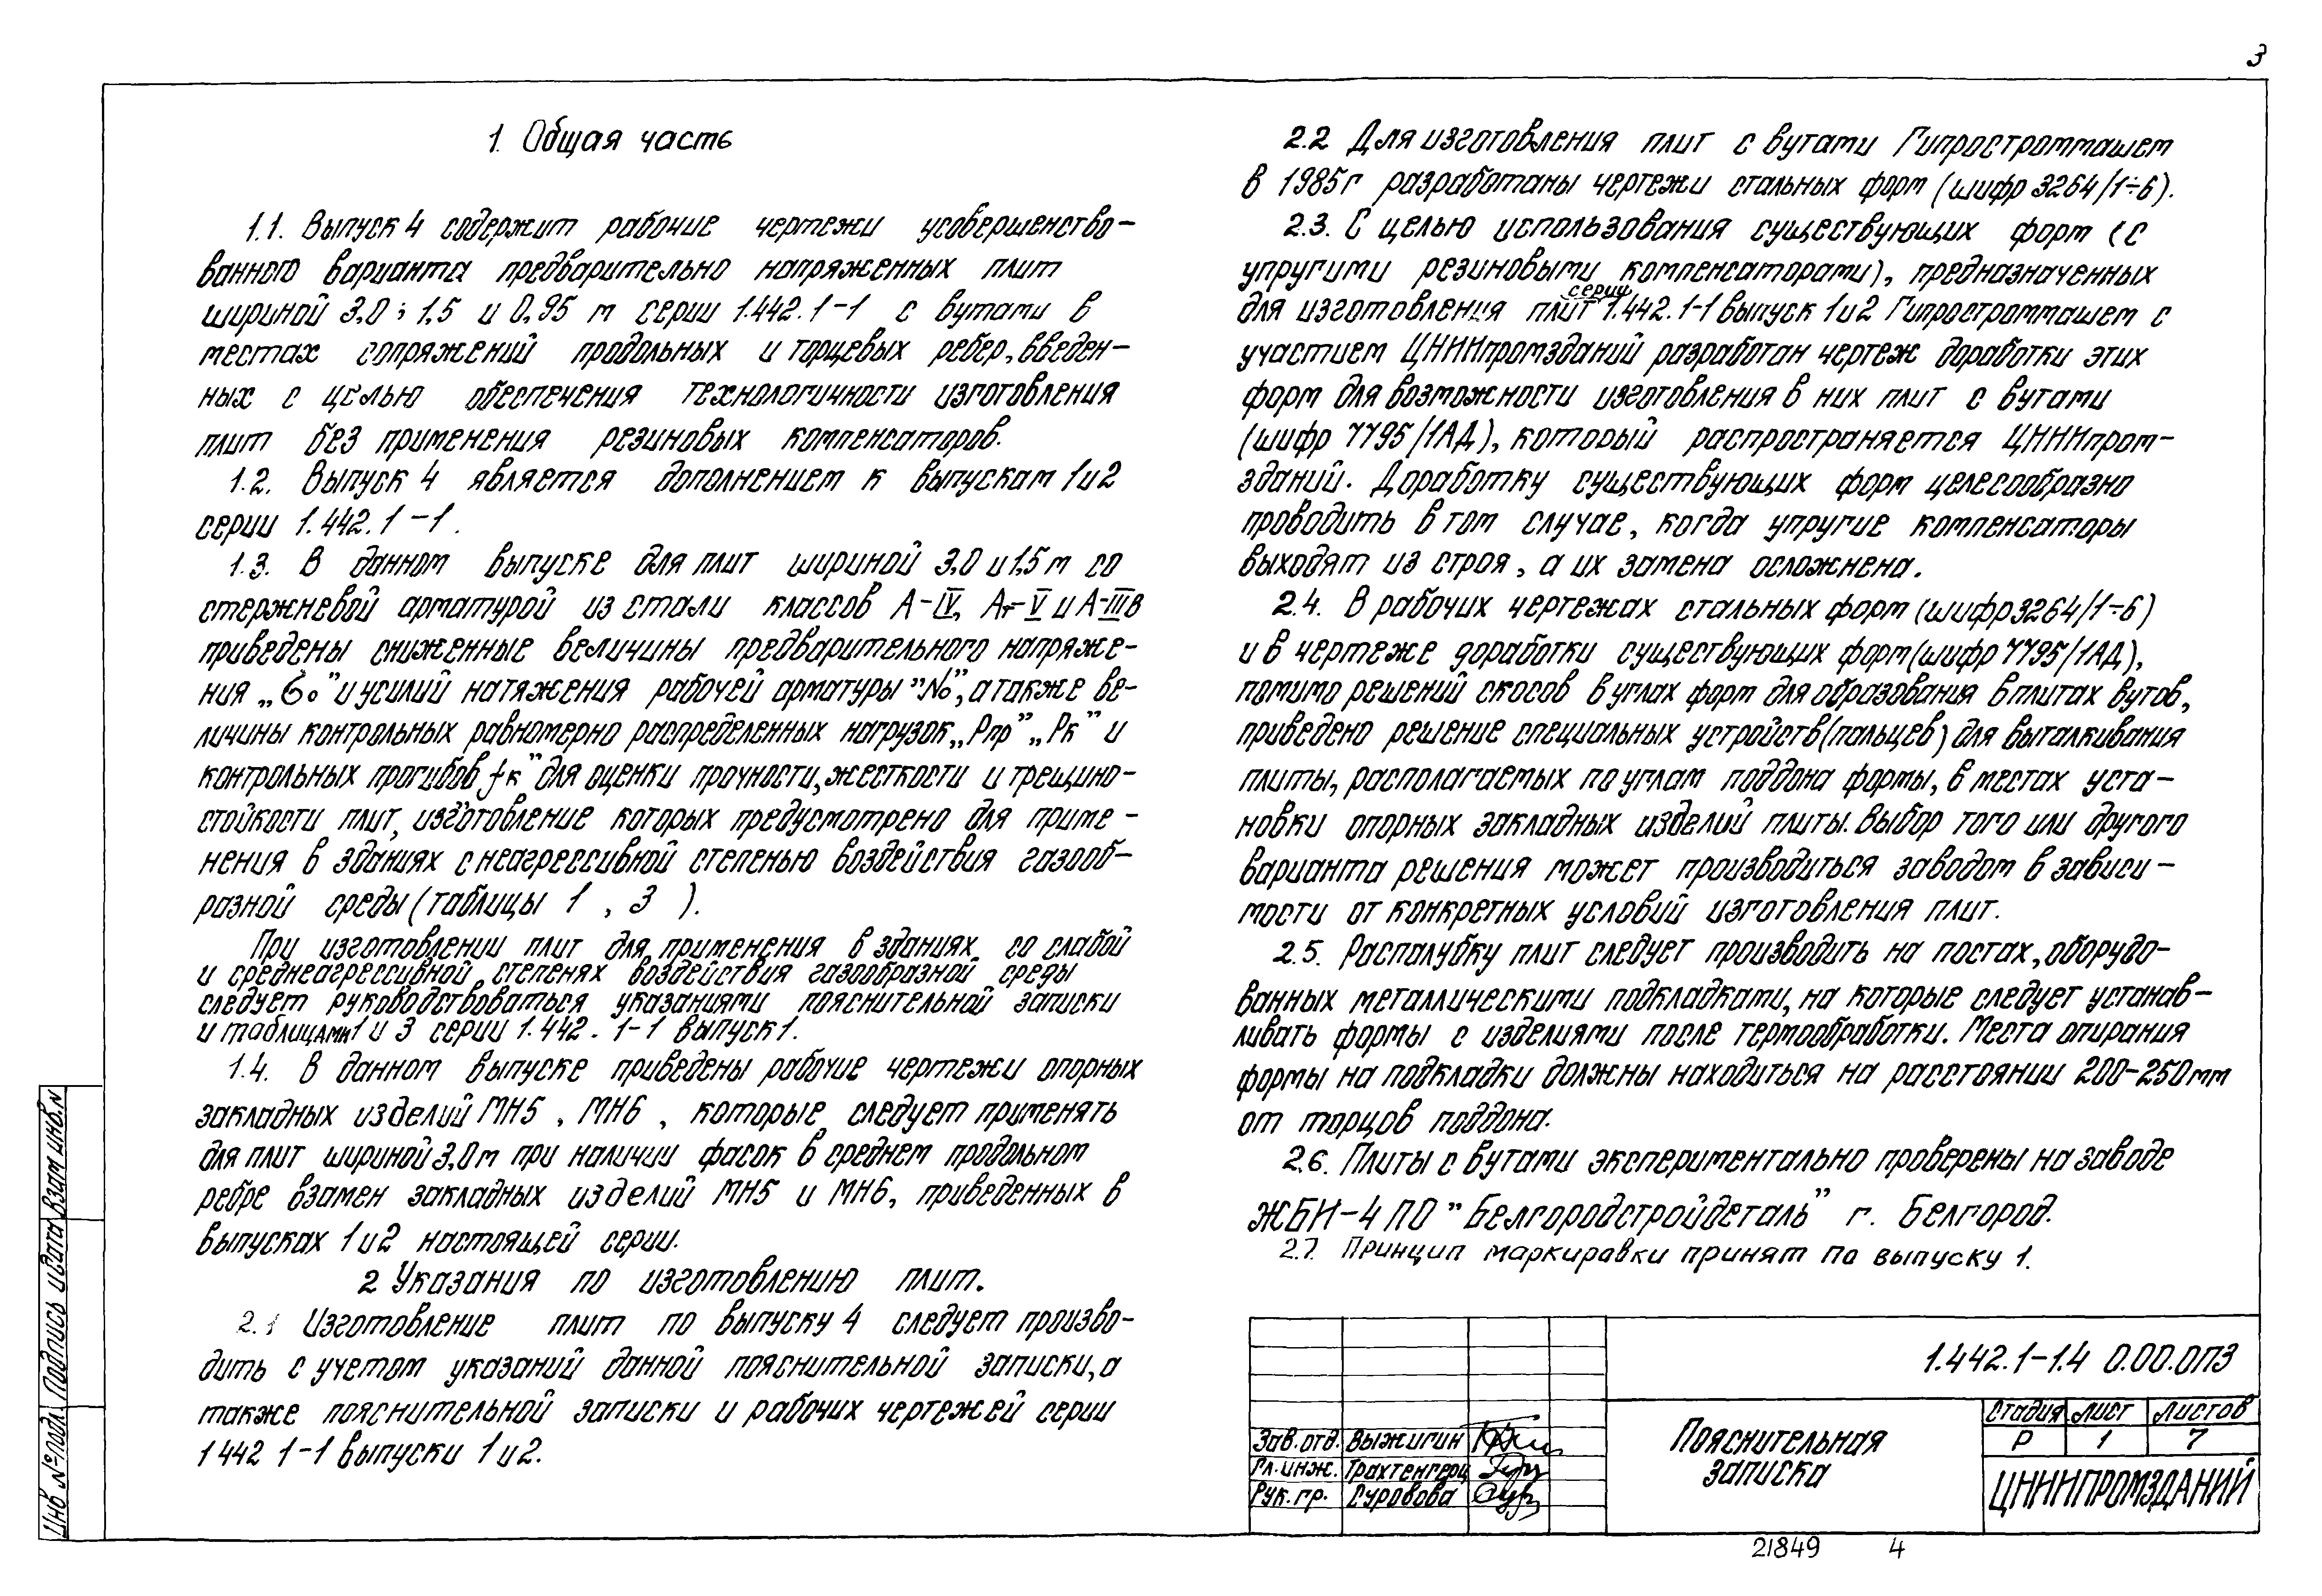 3
1. Общая часть
1.1. Выпуск 4 содержит рабочие чертежи усовершенство-
ванного варианта предварительно напряженных плит
шириной 3,0; 1,5 и 0,95 м серии 1.442.1-1 с вутами в
местах сопряжений продольных и торцевых ребер, введен-
ных с целью обеспечения технологичности изготовления
плит без применения резиновых компенсаторов.
1.2. Выпуск 4 является дополнением к выпускам 1 и 2
серии 1.442.1-1.
1.3. В данном выпуске для плит шириной 3,0 и 1,5 м со
стержневой арматурой из стали классов А-IV, Ат-V и А-IIIв
приведены сниженные величины предварительного напряже-
ния „б₀" и усилий натяжения рабочей арматуры "N₀", а также ве-
личины контрольных равномерно распределенных нагрузок „Рпр" „Рк" и
контрольных прогибов fк" для оценки прочности, жесткости и трещино-
стойкости плит, изготовление которых предусмотрено для приме-
нения в зданиях с неагрессивной степенью воздействия газооб-
разной среды (таблицы 1 , 3 ).
При изготовлении плит для применения в зданиях со слабой
и среднеагрессивной степенях воздействия газообразной среды
следует руководствоваться указаниями пояснительной записки
и таблицами 1 и 3 серии 1.442.1-1 выпуск 1.
1.4. В данном выпуске приведены рабочие чертежи опорных
закладных изделий МН5 , МН6 , которые следует применять
для плит шириной 3,0 м при наличии фасок в среднем продольном
ребре взамен закладных изделий МН5 и МН6, приведенных в
выпусках 1 и 2 настоящей серии.
2 Указания по изготовлению плит.
2.1 Изготовление плит по выпуску 4 следует произво-
дить с учетом указаний данной пояснительной записки, а
также пояснительной записки и рабочих чертежей серии
1 442 1-1 выпуски 1 и 2.
2.2 Для изготовления плит с вутами Гипростроммашем
в 1985г разработаны чертежи стальных форм (шифр 3264/1÷6).
2.3. С целью использования существующих форм (с
упругими резиновыми компенсаторами), предназначенных
для изготовления плит серии 1.442.1-1 выпуск 1 и 2 Гипростроммашем с
участием ЦНИИпромзданий разработан чертеж доработки этих
форм для возможности изготовления в них плит с вутами
(шифр 7795/1АД), который распространяется ЦНИИпром-
зданий. Доработку существующих форм целесообразно
проводить в том случае, когда упругие компенсаторы
выходят из строя, а их замена осложнена.
2.4. В рабочих чертежах стальных форм (шифр 3264/1÷6)
и в чертеже доработки существующих форм (шифр 7795/1АД),
помимо решений скосов в углах форм для образования в плитах вутов,
приведено решение специальных устройств (пальцев) для выталкивания
плиты, располагаемых по углам поддона формы, в местах уста-
новки опорных закладных изделий плиты. Выбор того или другого
варианта решения может производиться заводом в зависи-
мости от конкретных условий изготовления плит.
2.5. Распалубку плит следует производить на постах, оборудо-
ванных металлическими подкладками, на которые следует устанав-
ливать формы с изделиями после термообработки. Места опирания
формы на подкладки должны находиться на расстоянии 200-250 мм
от торцов поддона.
2.6. Плиты с вутами экспериментально проверены на заводе
ЖБИ-4 ПО "Белгородстройдеталь" г. Белгород.
2.7. Принцип маркировки принят по выпуску 1.
1.442.1-1.4 0.00.0ПЗ
Зав. отд. Выжигин
Гл. инж. Трахтенгерц
Рук. гр. Суровова
Пояснительная
записка
Стадия Лист Листов
Р 1 7
ЦНИИПРОМЗДАНИЙ
Инв № подл. Подпись и дата Взам инв. N
21849 4